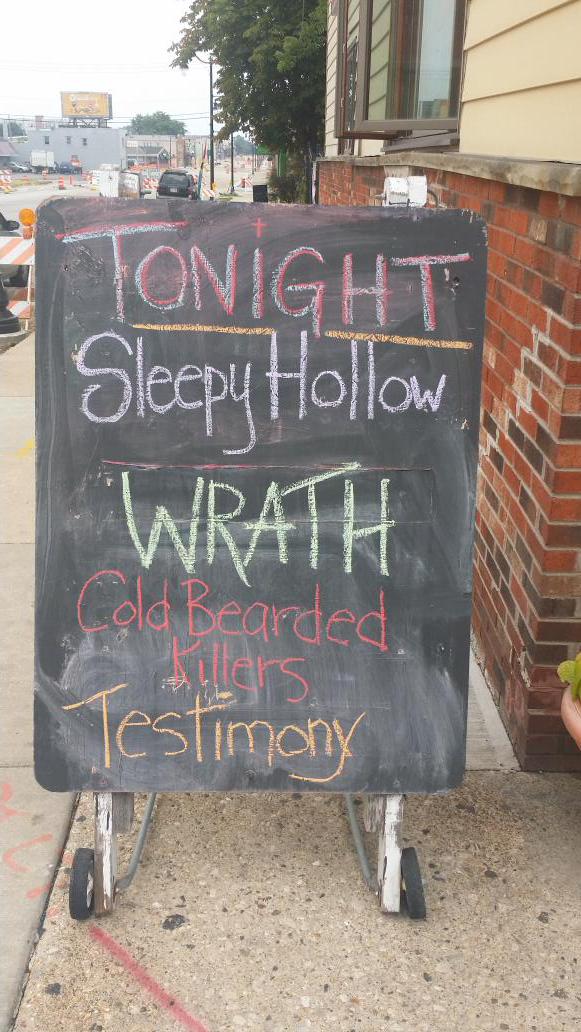 TONIGHT
Sleepy Hollow
WRATH
Cold Bearded
Killers
Testimony